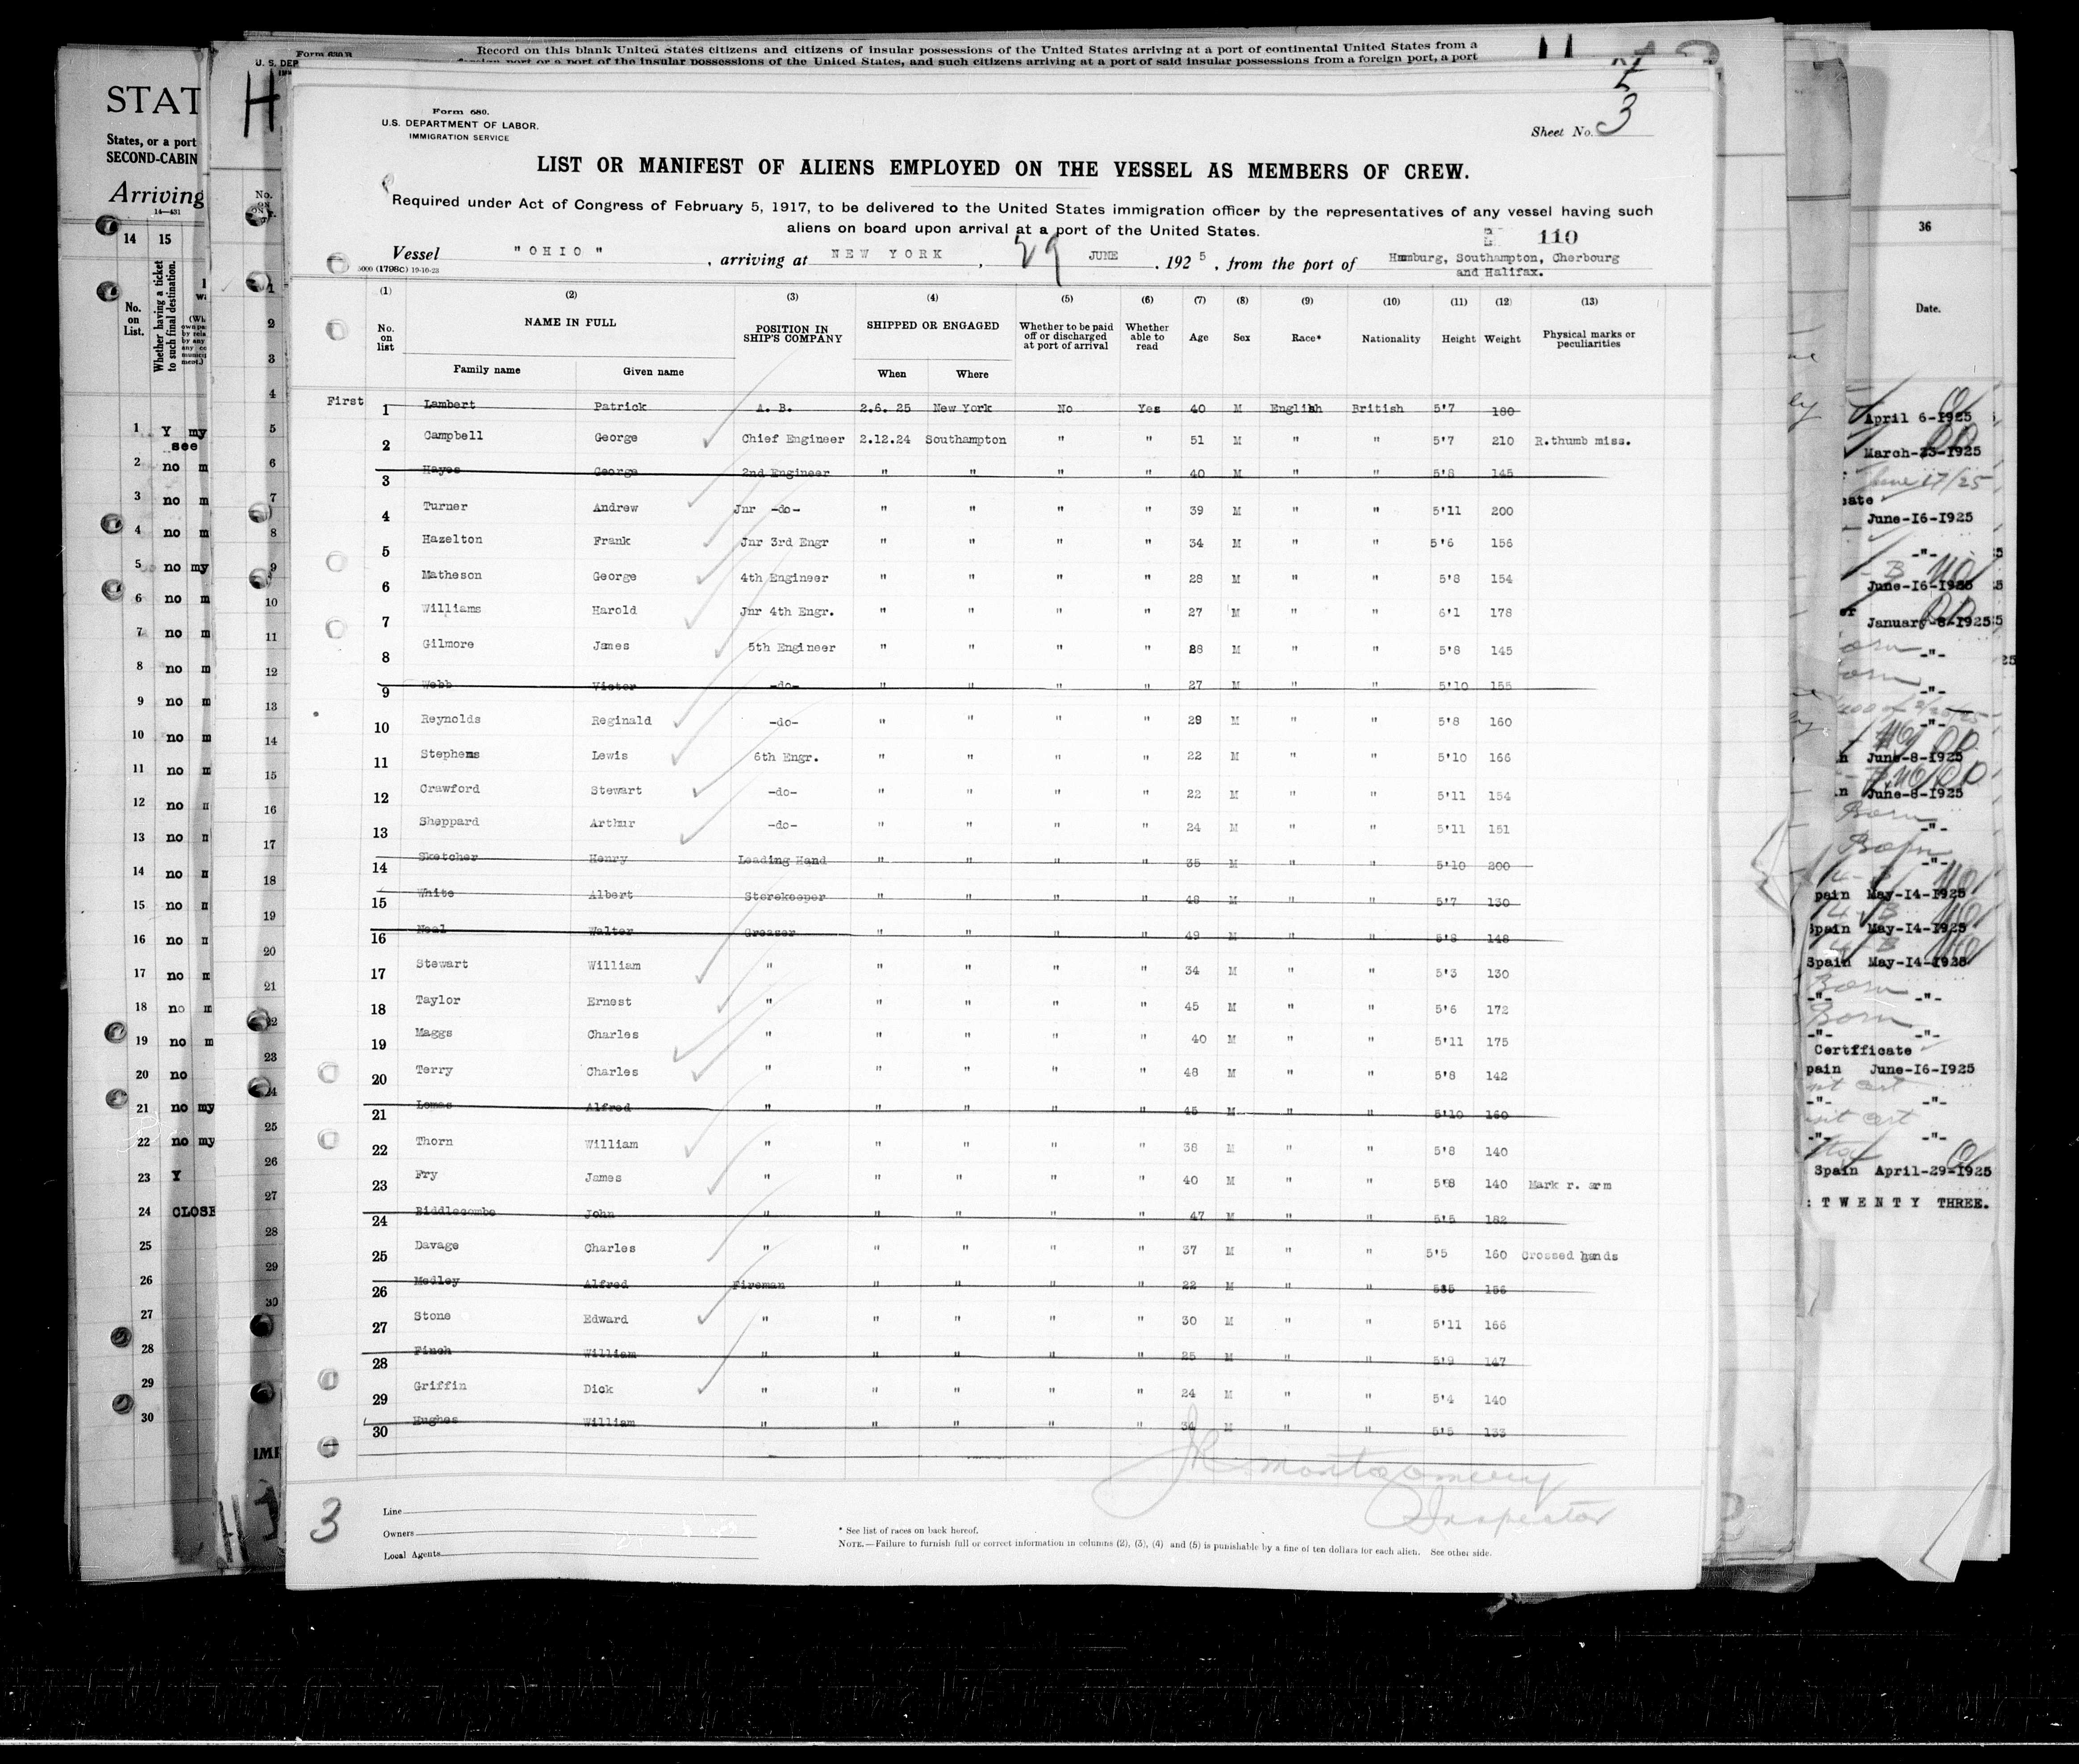 Record on this blank United States citizens and citizens of insular possessions of the United States arriving at a port of continental United States from a
foreign port or a port of the insular possessions of the United States, and such citizens arriving at a port of said insular possessions from a foreign port, a port
Form 680.
U.S. DEPARTMENT OF LABOR.
IMMIGRATION SERVICE
Sheet No. 3
LIST OR MANIFEST OF ALIENS EMPLOYED ON THE VESSEL AS MEMBERS OF CREW.
Required under Act of Congress of February 5, 1917, to be delivered to the United States immigration officer by the representatives of any vessel having such
aliens on board upon arrival at a port of the United States.
110
Vessel "OHIO", arriving at NEW YORK, 29 JUNE, 1925, from the port of Hamburg, Southampton, Cherbourg
and Halifax.
5000 (1798C) 19-10-23
(1) (2) (3) (4) (5) (6) (7) (8) (9) (10) (11) (12) (13)
No. on list NAME IN FULL POSITION IN SHIP'S COMPANY SHIPPED OR ENGAGED Whether to be paid off or discharged at port of arrival Whether able to read Age Sex Race* Nationality Height Weight Physical marks or peculiarities
Family name Given name When Where
First 1 Lambert Patrick A. B. 2.6. 25 New York No Yes 40 M English British 5'7 180
2 Campbell George Chief Engineer 2.12.24 Southampton " " 51 M " " 5'7 210 R.thumb miss.
3 Hayes George 2nd Engineer " " " " 40 M " " 5'8 145
4 Turner Andrew Jnr -do- " " " " 39 M " " 5'11 200
5 Hazelton Frank Jnr 3rd Engr " " " " 34 M " " 5'6 156
6 Matheson George 4th Engineer " " " " 28 M " " 5'8 154
7 Williams Harold Jnr 4th Engr. " " " " 27 M " " 6'1 178
8 Gilmore James 5th Engineer " " " " 28 M " " 5'8 145
9 Webb Victor -do- " " " " 27 M " " 5'10 155
10 Reynolds Reginald -do- " " " " 29 M " " 5'8 160
11 Stephens Lewis 6th Engr. " " " " 22 M " " 5'10 166
12 Crawford Stewart -do- " " " " 22 M " " 5'11 154
13 Sheppard Arthur -do- " " " " 24 M " " 5'11 151
14 Sketcher Henry Leading Hand " " " " 35 M " " 5'10 200
15 White Albert Storekeeper " " " " 48 M " " 5'7 130
16 Neal Walter Greaser " " " " 49 M " " 5'8 148
17 Stewart William " " " " " 34 M " " 5'3 130
18 Taylor Ernest " " " " " 45 M " " 5'6 172
19 Maggs Charles " " " " " 40 M " " 5'11 175
20 Terry Charles " " " " " 48 M " " 5'8 142
21 Lomas Alfred " " " " " 45 M " " 5'10 160
22 Thorn William " " " " " 38 M " " 5'8 140
23 Fry James " " " " " 40 M " " 5'8 140 Mark r. arm
24 Biddlecombe John " " " " " 47 M " " 5'5 182
25 Davage Charles " " " " " 37 M " " 5'5 160 Crossed hands
26 Medley Alfred Fireman " " " " 22 M " " 5'5 156
27 Stone Edward " " " " " 30 M " " 5'11 166
28 Finch William " " " " " 25 M " " 5'9 147
29 Griffin Dick " " " " " 24 M " " 5'4 140
30 Hughes William " " " " " 34 M " " 5'5 133
JR Montgomery
Inspector
3
Line
Owners
Local Agents
* See list of races on back hereof.
NOTE.—Failure to furnish full or correct information in columns (2), (3), (4) and (5) is punishable by a fine of ten dollars for each alien. See other side.
STAT
States, or a port
SECOND-CABIN
Arriving
14—431
14 15
No. on List.
Whether having a ticket to such final destination.
1 Y my
see
2 no m
3 no m
4 no m
5 no my
6 no m
7 no m
8 no m
9 no m
10 no m
11 no m
12 no
13 no
14 no
15 no
16 no
17 no m
18 no m
19 no m
20 no
21 no my
22 no my
23 Y
24 CLOSE
25
26
27
28
29
30
36
Date.
April 6-1925
March-23-1925
June 17/25
June-16-1925
-"-
June-16-1925
January-8-1925
-"-
-"-
-"-
June-8-1925
June-8-1925
Born -"-
Born -"-
pain May-14-1925
Spain May-14-1925
Spain May-14-1925
Born
-"- -"-
Born
-"- -"-
Certificate
pain June-16-1925
-"- -"-
-"- -"-
Spain April-29-1925
: TWENTY THREE.